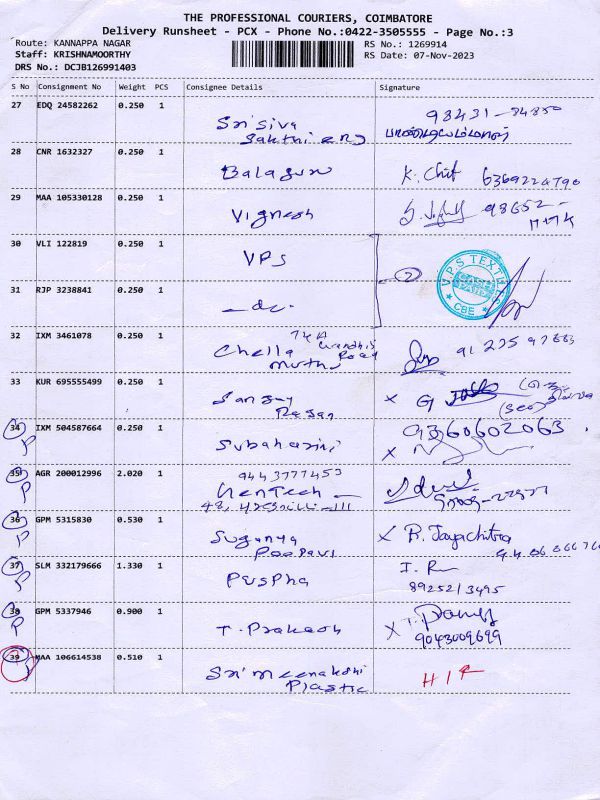 THE PROFESSIONAL COURIERS, COIMBATORE
Delivery Runsheet - PCX - Phone No.:0422-3505555 - Page No.:3
Route: KANNAPPA NAGAR
RS No.: 1269914
Staff: KRISHNAMOORTHY
RS Date: 07-Nov-2023
DRS No.: DCJB126991403
S No Consignment No Weight PCS Consignee Details Signature
27 EDQ 24582262 0.250 1
Sri Siva
Sakthi eng
98431-84850
28 CNR 1632327 0.250 1
Balaguru
K. Chit
29 MAA 105330128 0.250 1
Vignesh
98652-
30 VLI 122819 0.250 1
VPS
2
V.P.S TEXTILES
CASH PAID
CBE
31 RJP 3238841 0.250 1
-do-
32 IXM 3461078 0.250 1
Chella
muthu
74A
Gandhi
Road
33 KUR 695555499 0.250 1
Sanjay
Rajan
x
34 IXM 504587664 0.250 1
P
Subahasini
9360602063.
x
35 AGR 200012996 2.020 1
P
9443777453
36 GPM 5315830 0.530 1
P
Suganya
x R. Jayachitra
37 SLM 332179666 1.330 1
P
Puspha
8925213495
38 GPM 5337946 0.900 1
P
T. Prakash
x
9043009699
39 MAA 106614538 0.510 1
Sri meenakshi
Plastic